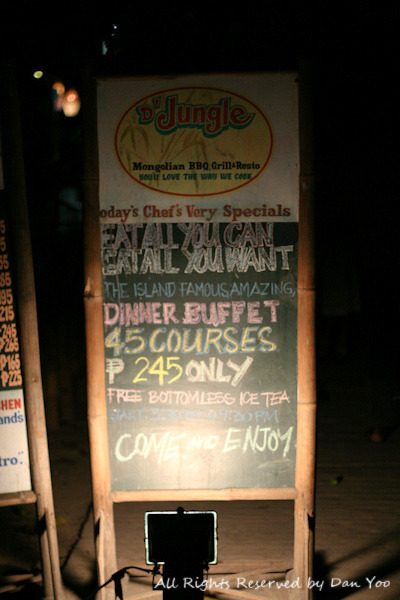 D'Jungle
Mongolian BBQ, Grill & Resto
YOU'LL LOVE THE WAY WE COOK
oday's Chef's Very Specials
EAT ALL YOU CAN
EAT ALL YOU WANT
THE ISLAND FAMOUS, AMAZING,
DINNER BUFFET
45 COURSES
₱ 245 ONLY
FREE BOTTOMLESS ICE TEA
9:30 PM
COME AND ENJOY
215
245
245
P165
P225
HEN
ands
tro."
All Rights Reserved by Dan Yoo